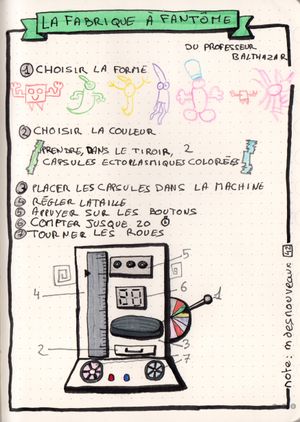 LA FABRIQUE À FANTÔME
DU PROFESSEUR
BALTHAZAR
1 CHOISIR LA FORME
2 CHOISIR LA COULEUR
PRENDRE, DANS LE TIROIR, 2
CAPSULES ECTOPLASMIQUES COLORÉES
3 PLACER LES CAPSULES DANS LA MACHINE
4 RÉGLER LATAILLE
5 APPUYER SUR LES BOUTONS
6 COMPTER JUSQUE 20
7 TOURNER LES ROUES
5
6
4
1
2
3
7
note: mdesnouveaux